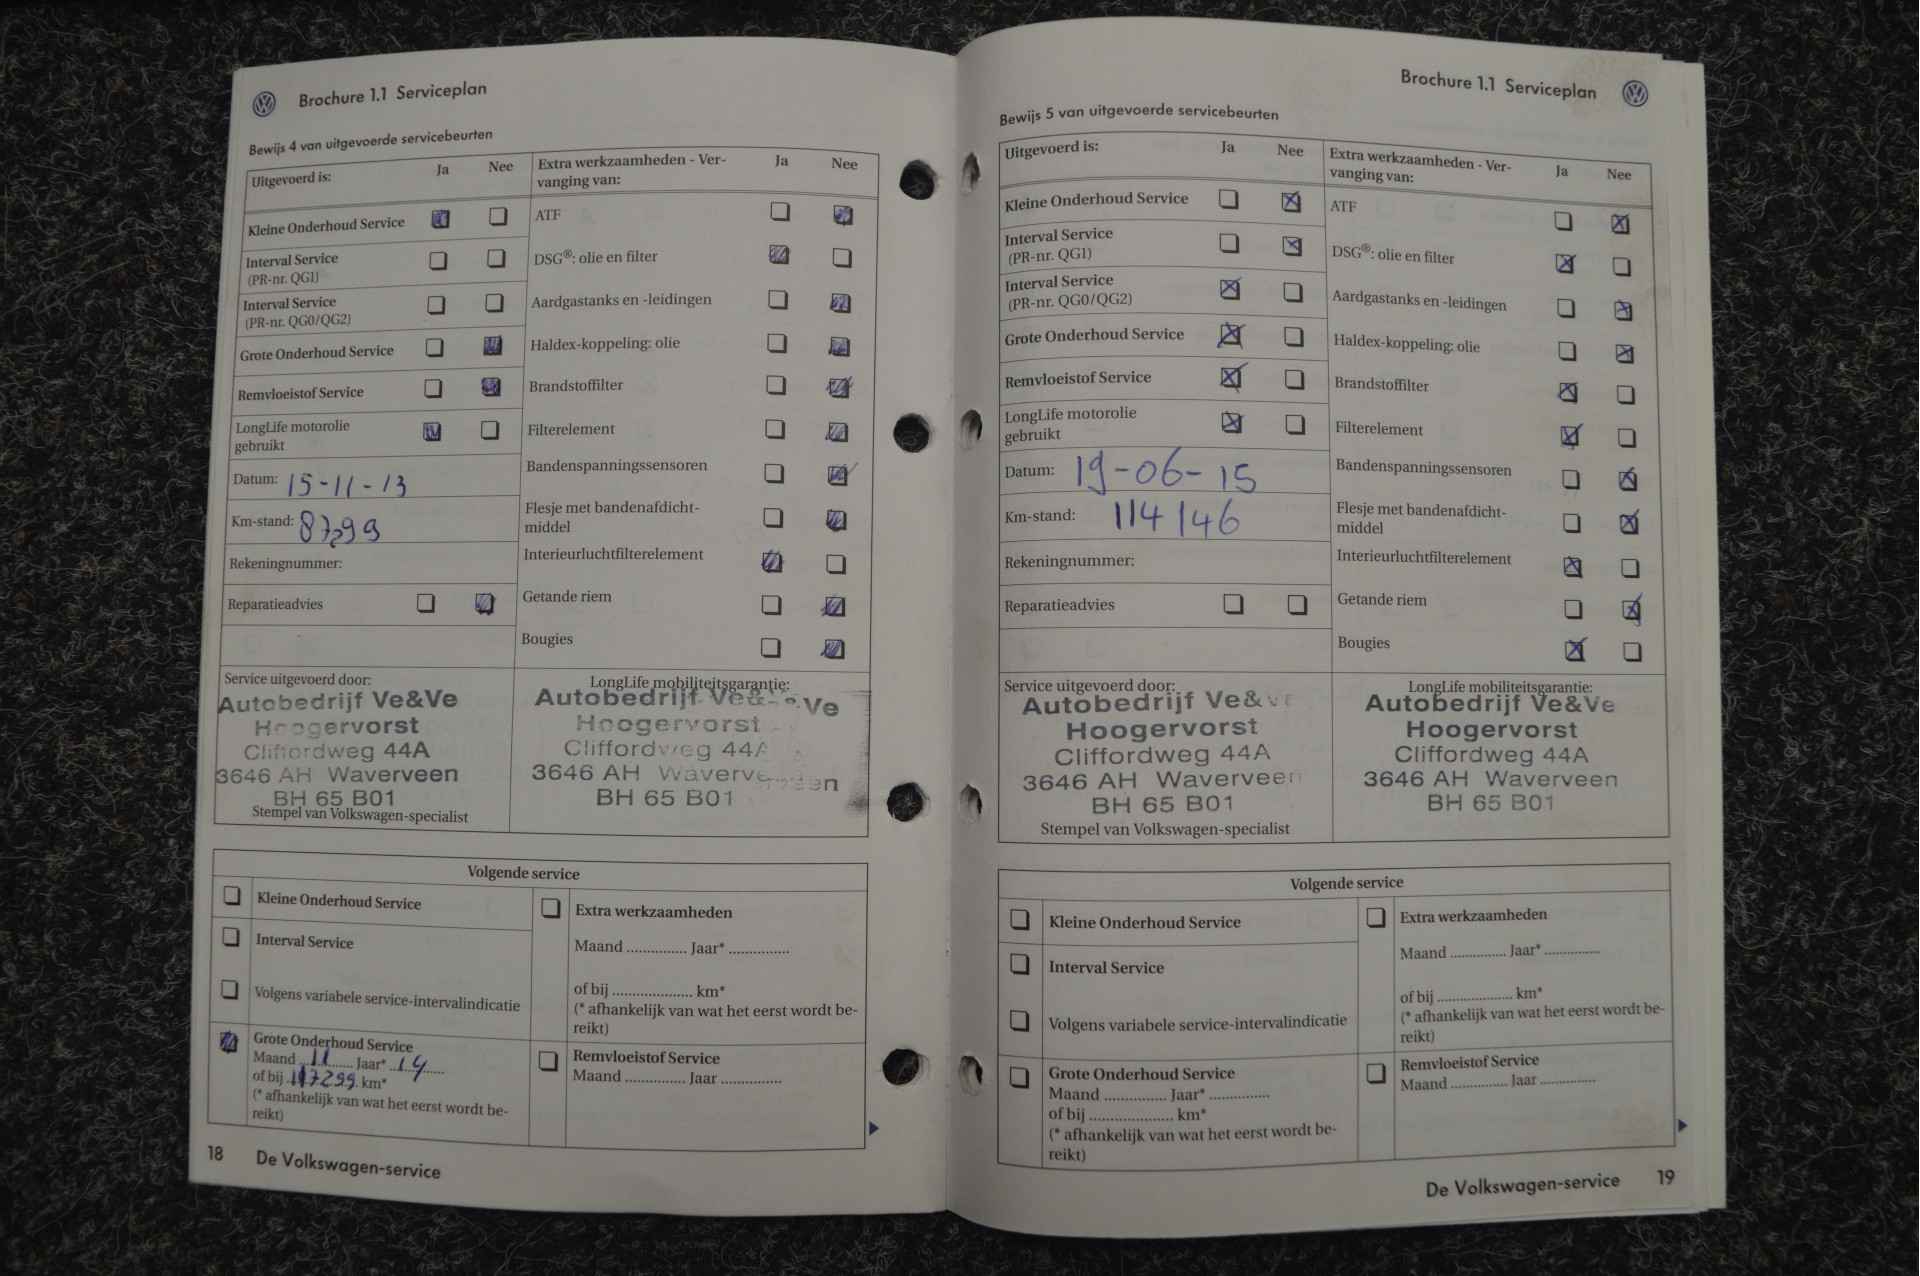 Brochure 1.1 Serviceplan
Bewijs 4 van uitgevoerde servicebeurten
Uitgevoerd is: Ja Nee
Kleine Onderhoud Service
Interval Service
(PR-nr. QG1)
Interval Service
(PR-nr. QG0/QG2)
Grote Onderhoud Service
Remvloeistof Service
LongLife motorolie
gebruikt
Datum: 15-11-13
Km-stand: 87299
Rekeningnummer:
Reparatieadvies
Extra werkzaamheden - Ver-
vanging van: Ja Nee
ATF
DSG®: olie en filter
Aardgastanks en -leidingen
Haldex-koppeling: olie
Brandstoffilter
Filterelement
Bandenspanningssensoren
Flesje met bandenafdicht-
middel
Interieurluchtfilterelement
Getande riem
Bougies
Service uitgevoerd door:
Autobedrijf Ve&Ve
Hoogervorst
Cliffordweg 44A
3646 AH Waverveen
BH 65 B01
Stempel van Volkswagen-specialist
LongLife mobiliteitsgarantie:
Autobedrijf Ve&Ve
Hoogervorst
Cliffordweg 44A
3646 AH Waverveen
BH 65 B01
Volgende service
Kleine Onderhoud Service
Interval Service
Volgens variabele service-intervalindicatie
Grote Onderhoud Service
Maand 11 Jaar* 14
of bij 117299 km*
(* afhankelijk van wat het eerst wordt be-
reikt)
Extra werkzaamheden
Maand ............... Jaar* ...............
of bij ..................... km*
(* afhankelijk van wat het eerst wordt be-
reikt)
Remvloeistof Service
Maand ............... Jaar ...............
18 De Volkswagen-service
Brochure 1.1 Serviceplan
Bewijs 5 van uitgevoerde servicebeurten
Uitgevoerd is: Ja Nee
Kleine Onderhoud Service
Interval Service
(PR-nr. QG1)
Interval Service
(PR-nr. QG0/QG2)
Grote Onderhoud Service
Remvloeistof Service
LongLife motorolie
gebruikt
Datum: 19-06-15
Km-stand: 114146
Rekeningnummer:
Reparatieadvies
Extra werkzaamheden - Ver-
vanging van: Ja Nee
ATF
DSG®: olie en filter
Aardgastanks en -leidingen
Haldex-koppeling: olie
Brandstoffilter
Filterelement
Bandenspanningssensoren
Flesje met bandenafdicht-
middel
Interieurluchtfilterelement
Getande riem
Bougies
Service uitgevoerd door:
Autobedrijf Ve&Ve
Hoogervorst
Cliffordweg 44A
3646 AH Waverveen
BH 65 B01
Stempel van Volkswagen-specialist
LongLife mobiliteitsgarantie:
Autobedrijf Ve&Ve
Hoogervorst
Cliffordweg 44A
3646 AH Waverveen
BH 65 B01
Volgende service
Kleine Onderhoud Service
Interval Service
Volgens variabele service-intervalindicatie
Grote Onderhoud Service
Maand ............... Jaar* ...............
of bij ..................... km*
(* afhankelijk van wat het eerst wordt be-
reikt)
Extra werkzaamheden
Maand ............... Jaar* ...............
of bij ..................... km*
(* afhankelijk van wat het eerst wordt be-
reikt)
Remvloeistof Service
Maand ............... Jaar ...............
De Volkswagen-service 19